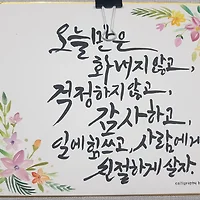 오늘만은
화내지않고,
걱정하지않고,
감사하고,
일에힘쓰고,사람에게
친절하게살자.